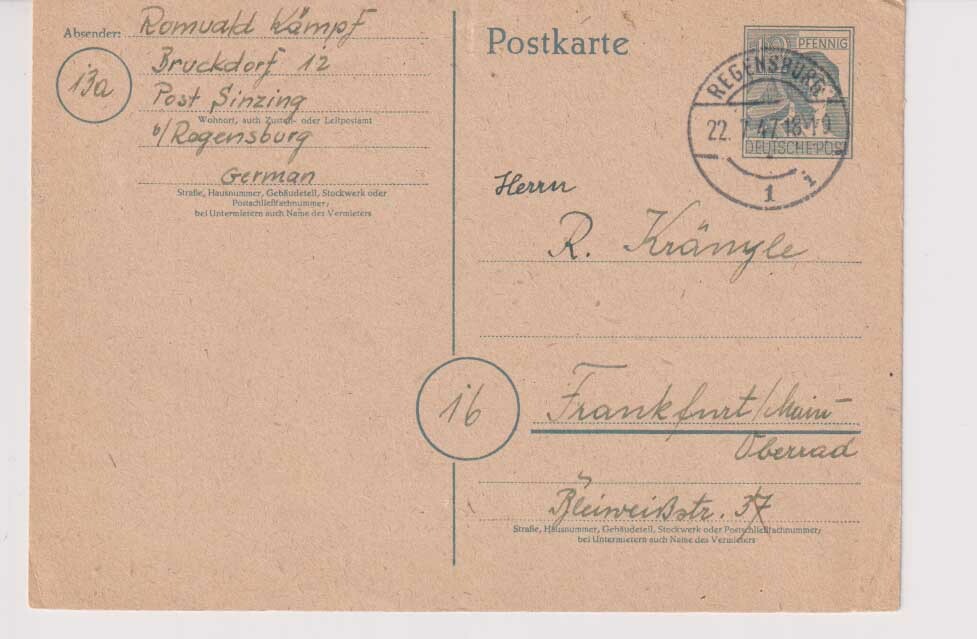 Absender: Romuald Kämpf
13a
Bruckdorf 12
Post Sinzing
Wohnort, auch Zustell- oder Leitpostamt
b/Regensburg
German
Straße, Hausnummer, Gebäudeteil, Stockwerk oder
Postschließfachnummer;
bei Untermietern auch Name des Vermieters
Postkarte
12 PFENNIG
DEUTSCHE POST
REGENSBURG
22. 47 18-19
1
Herrn
R. Krängle
16
Frankfurt/Main-
Oberrad
Bleiweißstr. 37
Straße, Hausnummer, Gebäudeteil, Stockwerk oder Postschließfachnummer;
bei Untermietern auch Name des Vermieters